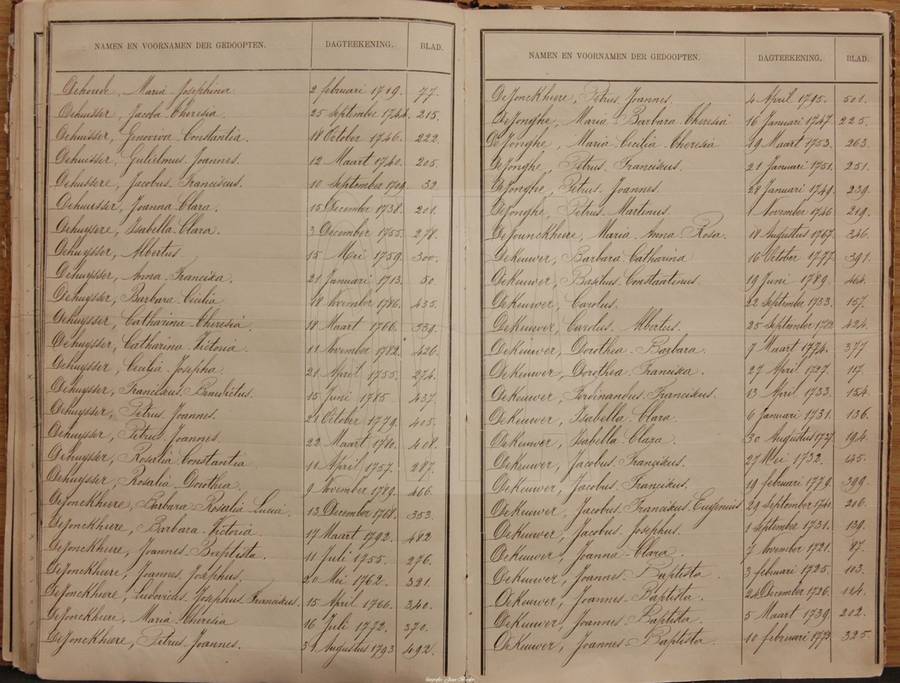 NAMEN EN VOORNAMEN DER GEDOOPTEN. DAGTEEKENING. BLAD.
Dehorde, Maria Josephina 2 februari 1719. 77.
Dehuisser, Jacoba Theresia 25 September 1744. 215.
Dehuisser, Genoveva Constantia. 18 October 1746. 222
Dehuisser, Gulielmus Joannes. 12 Maart 1740. 205.
Dehuissere, Jacobus Franciscus. 10 September 1709. 32.
Dehuissere, Joanna Clara. 15 December 1738. 201.
Dehuysere, Isabella Clara. 3 December 1755. 278.
Dehuysser, Albertus 15 Mei 1759. 300.
Dehuysser, Anna Francisca. 21 Januari 1713. 50.
Dehuysser, Barbara Cecilia 18 November 1786. 435.
Dehuysser, Catharina Theresia. 18 Maart 1766. 339.
Dehuysser, Catharina Victoria. 11 November 1782. 426.
Dehuysser, Cecilia Josepha. 21 April 1755. 274.
Dehuysser, Franciscus Benedictus. 15 Juni 1785. 437.
Dehuysser, Petrus Joannes. 21 October 1779. 405.
Dehuysser, Petrus Joannes. 22 Maart 1780. 408.
Dehuysser, Rosalia Constantia 11 April 1757. 287.
Dehuysser, Rosalia Dorothea. 9 November 1789. 466.
DeJonckheere, Barbara Rosalia Lucia. 13 December 1768. 353.
DeJonckheere, Barbara Victoria 17 Maart 1792. 482
DeJonckheere, Joannes Baptista. 11 Juli 1755. 276.
DeJonckheere, Joannes Josephus. 20 Mei 1762. 321.
DeJonckheere, Ludovicus Josephus Franciscus. 15 April 1766. 340.
DeJonckheere, Maria Theresia 16 Juli 1772. 370.
DeJonckheere, Petrus Joannes. 31 Augustus 1793 492.
NAMEN EN VOORNAMEN DER GEDOOPTEN. DAGTEEKENING. BLAD.
DeJonckheere, Petrus Joannes. 4 April 1795. 501.
DeJonghe, Maria Barbara Theresia 16 Januari 1747. 225.
DeJonghe, Maria Cecilia Theresia 19 Maart 1753. 263.
DeJonghe, Petrus Franciscus. 21 Januari 1751. 251.
DeJonghe, Petrus Joannes. 28 Januari 1749. 239.
DeJonghe, Petrus Martinus. 1 November 1746 219.
DeJounckheere, Maria Anna Rosa. 18 Augustus 1767. 346.
DeKeuwer, Barbara Catharina 16 October 1777. 391.
DeKeuwer, Basilius Constantinus. 19 Juni 1789. 464.
DeKeuwer, Carolus. 22 September 1733. 157.
DeKeuwer, Carolus Albertus. 25 September 1782. 424.
DeKeuwer, Dorothea Barbara. 7 Maart 1774. 377
DeKeuwer, Dorothea Francisca. 27 April 1727. 117.
DeKeuwer, Ferdinandus Franciscus. 13 April 1733. 154.
DeKeuwer, Isabella Clara. 6 Januari 1731. 136.
DeKeuwer, Isabella Clara. 30 Augustus 1737. 194.
DeKeuwer, Jacobus Franciscus. 27 Mei 1732. 145.
DeKeuwer, Jacobus Franciscus. 19 februari 1779. 399.
DeKeuwer, Jacobus Franciscus Eugenius 29 September 1741. 206.
DeKeuwer, Jacobus Josephus. 1 September 1731. 139.
DeKeuwer, Joanna Clara. 7 November 1721. 87.
DeKeuwer, Joannes Baptista. 3 februari 1725. 103.
DeKeuwer, Joannes Baptista. 24 December 1726. 114.
DeKeuwer, Joannes Baptista 5 Maart 1739. 202.
DeKeuwer, Joannes Baptista. 10 februari 325.